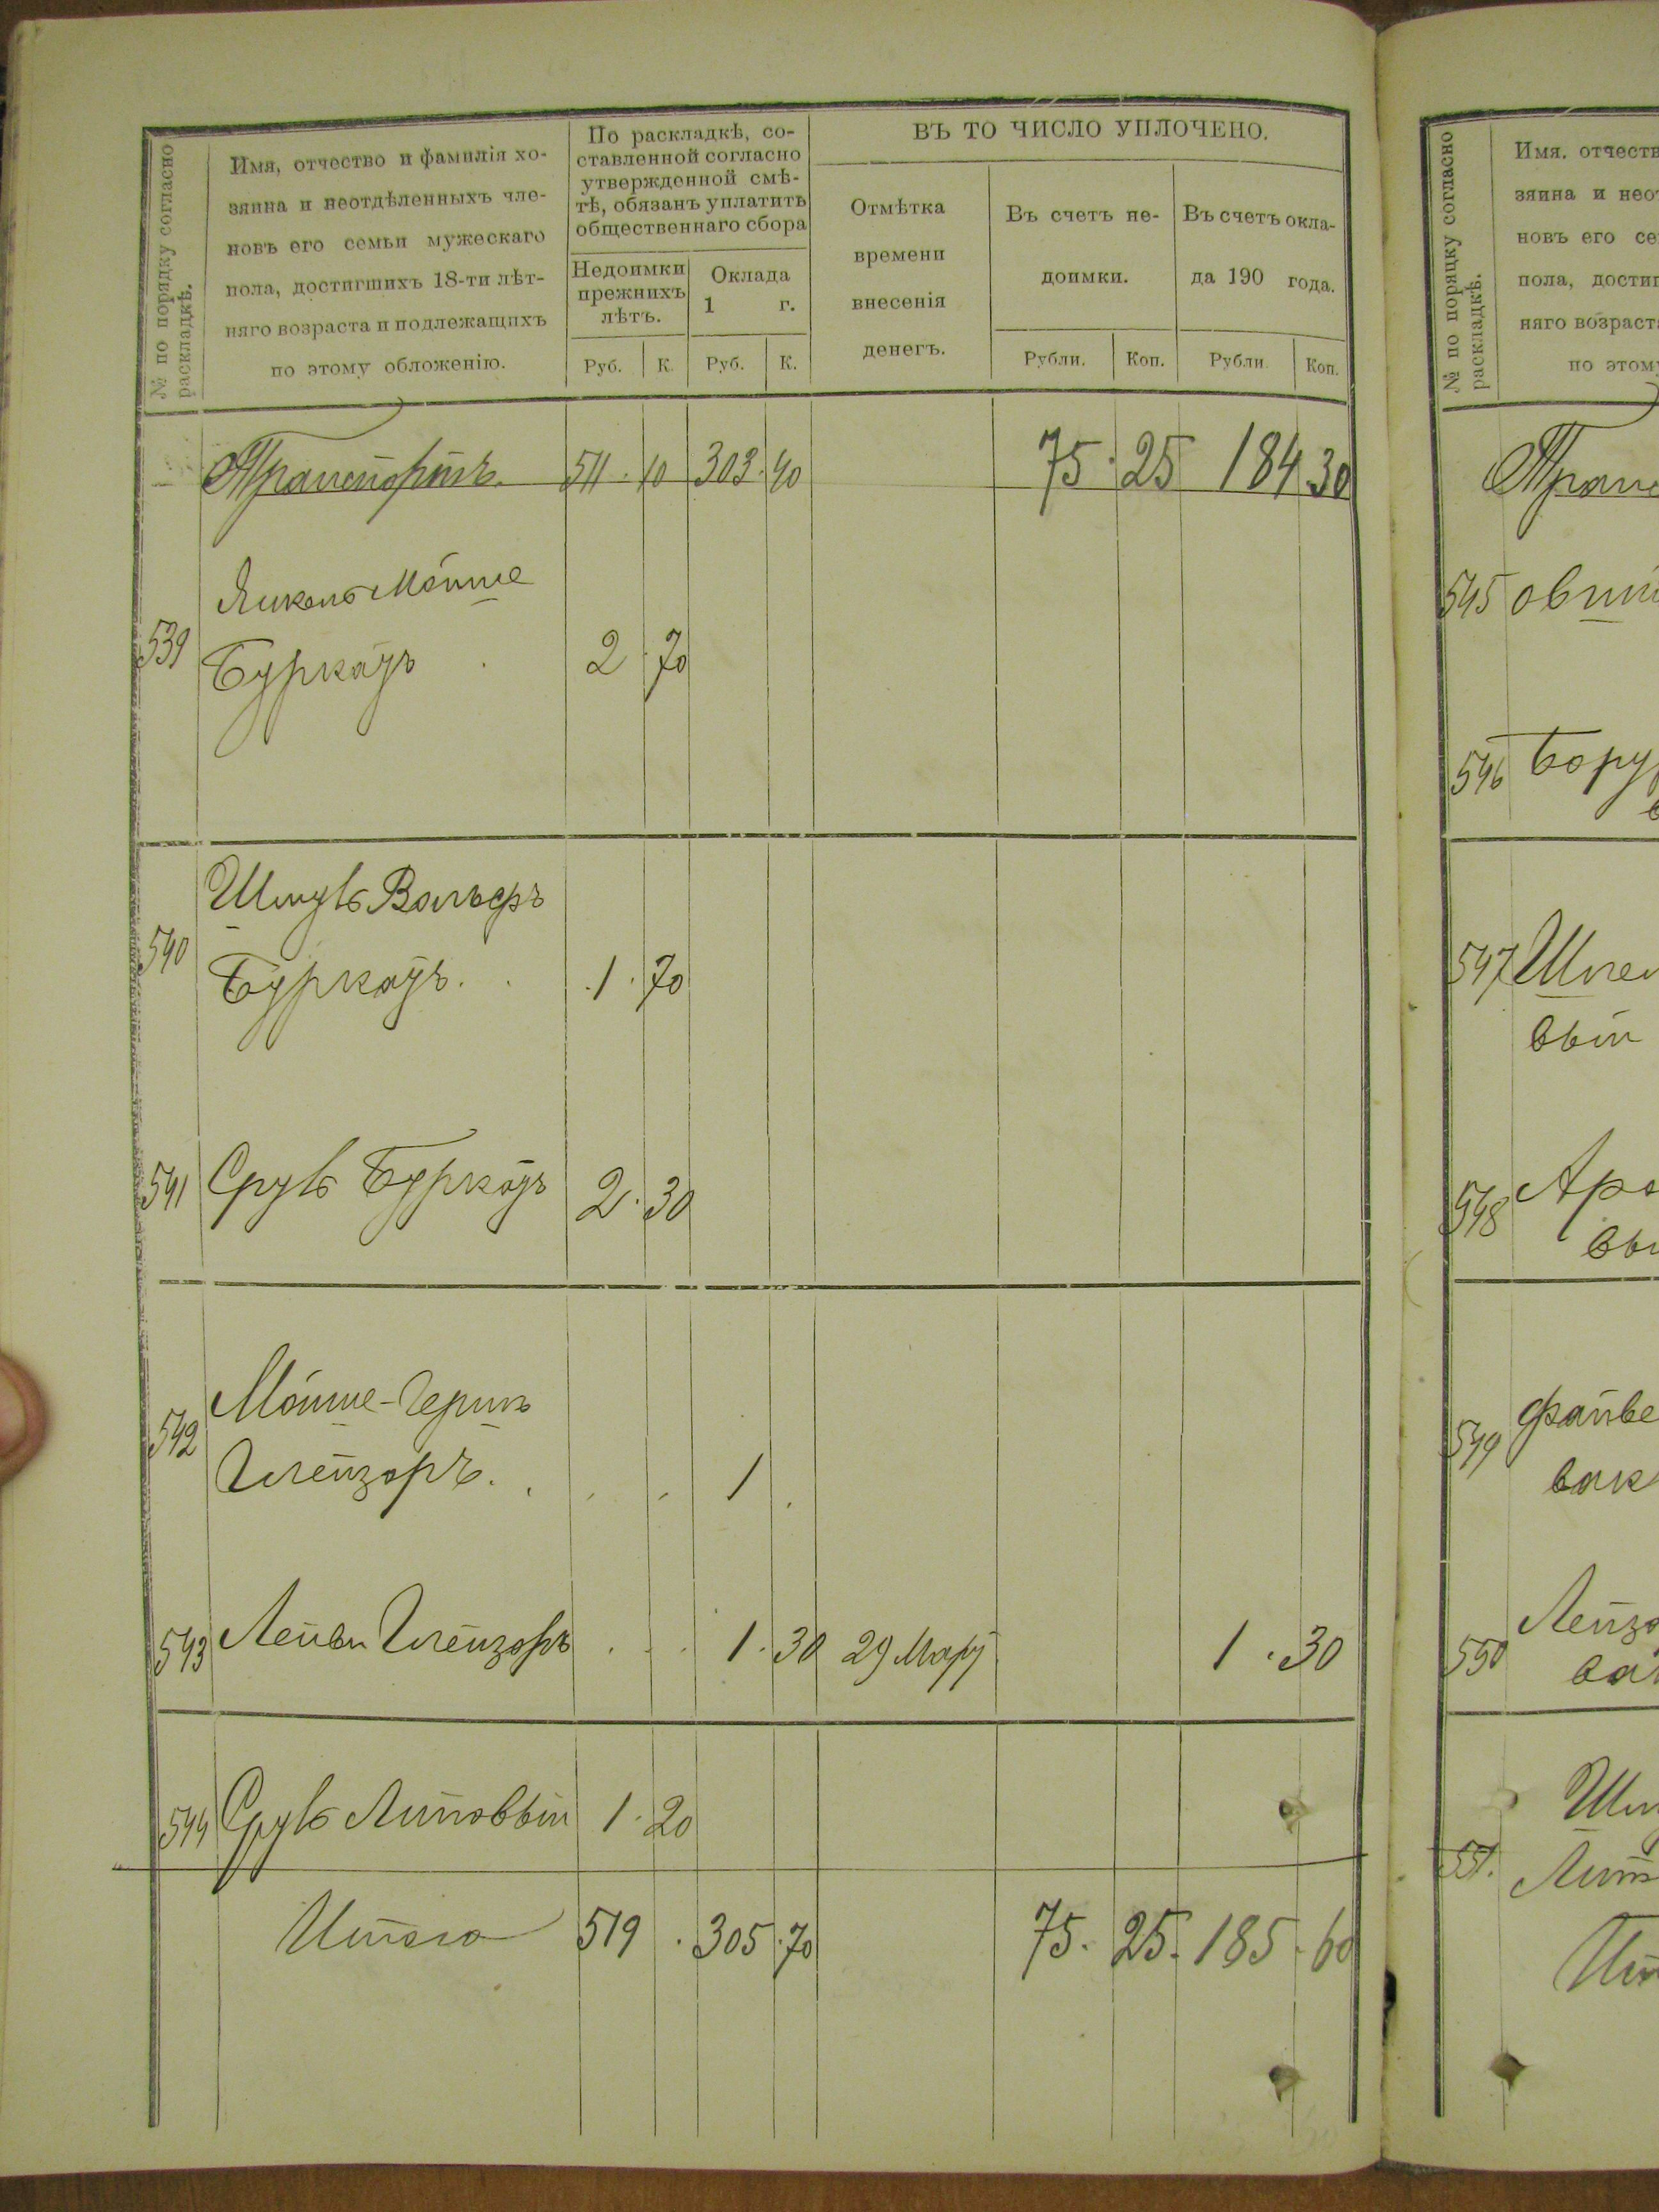 № по порядку согласно раскладкѣ.
Имя, отчество и фамилія хо-
зяина и неотдѣленныхъ чле-
новъ его семьи мужескаго
пола, достигшихъ 18-ти лѣт-
няго возраста и подлежащихъ
по этому обложенію.
По раскладкѣ, со-
ставленной согласно
утвержденной смѣ-
тѣ, обязанъ уплатить
общественнаго сбора
Недоимки
прежнихъ
лѣтъ.
Оклада
1 г.
Руб. К. Руб. К.
ВЪ ТО ЧИСЛО УПЛОЧЕНО.
Отмѣтка
времени
внесенія
денегъ.
Въ счетъ не-
доимки.
Въ счетъ окла-
да 190 года.
Рубли. Коп. Рубли. Коп.
Транспортъ. 511 . 10 303 . 40 75 . 25 184 30
Янкель Мойше
539 Буркацъ 2 . 70
Шмуль Вольфъ
540 Буркацъ. 1 . 70
541 Сруль Буркацъ 2 . 30
542 Мойше-Герш
Глейзоръ. 1
543 Лейви Глейзоръ 1 . 30 29 Мар 1 . 30
544 Сруль Литовый 1 . 20
Итого 519 . 305 . 70 75 . 25 . 185 . 60
№ по порядку согласно раскладкѣ.
Имя. отчеств
зяина и неот
новъ его се
пола, достиг
няго возраст
по этом
Транс
545 овый
546 Бору
547 Шле
вый
548 Аро
вы
549 Файве
вак
550 Лейзо
ва
Шм
551. Лит
Ит